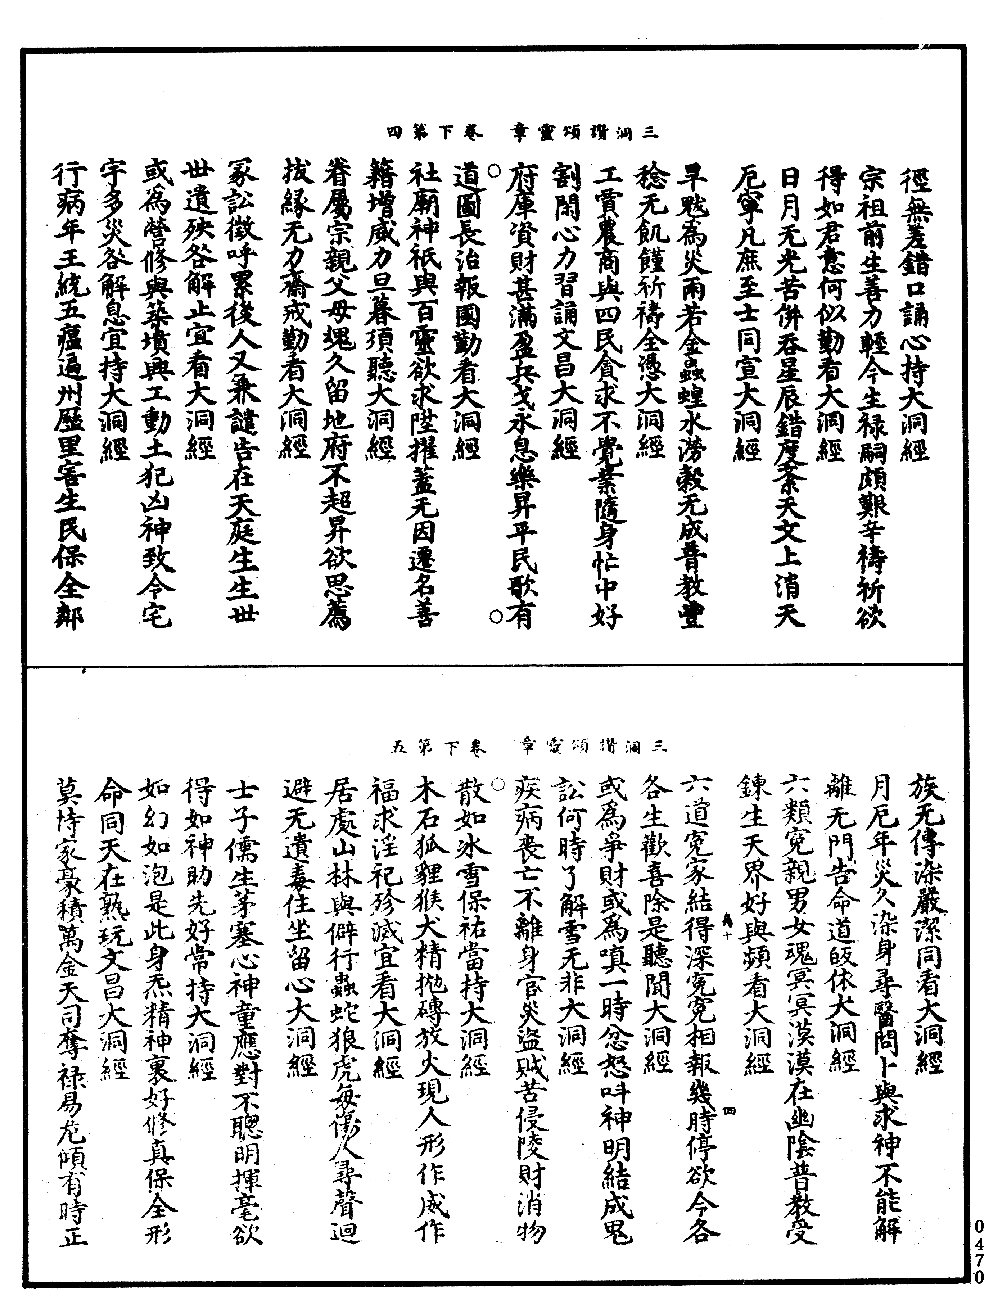 三洞讚頌靈章　卷下第四
徑無差錯口誦心持大洞經
宗祖前生善力輕今生祿嗣頗艱辛禱祈欲
得如君意何似勤看大洞經
日月无光苦併吞星辰錯度紊天文上消天
厄寧凡庶至士同宣大洞經
旱戰為災雨若金蟲蝗水澇穀无成普教豐
稔无飢饉祈禱全憑大洞經
工賈農商與四民貪求不覺業隨身忙中好
割閑心力習誦文昌大洞經
府庫資財甚滿盈兵戈永息樂昇平民歌有
道圖長治報國勤看大洞經
社廟神祇與百靈欲求陞擢蓋无因遷名善
籍增威力旦暮須聽大洞經
眷屬宗親父母魂久留地府不超昇欲思薦
拔緣无力齋戒勤看大洞經
冢訟徵呼累後人又兼譴告在天庭生生世
世遺殃咎解止宜看大洞經
或為營修與築墳興工動土犯凶神致令宅
宇多災咎解息宜持大洞經
行病年王統五瘟遍州歷里害生民保全鄰
三洞讚頌靈章　卷下第五
族无傳染嚴潔同看大洞經
月厄年災久染身尋醫問卜與求神不能解
離无門告命道皈依大洞經
六類冤親男女魂冥冥漠漠在幽陰普教受
鍊生天界好與頻看大洞經
六道冤家結得深冤冤相報幾時停欲令各
各生歡喜除是聽聞大洞經
或為爭財或為嗔一時忿怒呌神明結成冤
訟何時了解雪无非大洞經
疾病喪亡不離身官災盜賊苦侵陵財消物
散如冰雪保祐當持大洞經
木石狐貍猴犬精拋磚放火現人形作威作
福求淫祀殄滅宜看大洞經
居處山林與僻行蟲蛇狼虎每傷人尋聲迴
避无遺毒住坐留心大洞經
士子儒生茅塞心神童應對不聰明揮毫欲
得如神助先好常持大洞經
如幻如泡是此身炁精神裏好修真保全形
命同天在熟玩文昌大洞經
莫恃家豪積萬金天司奪祿易危傾有時正
四
0470